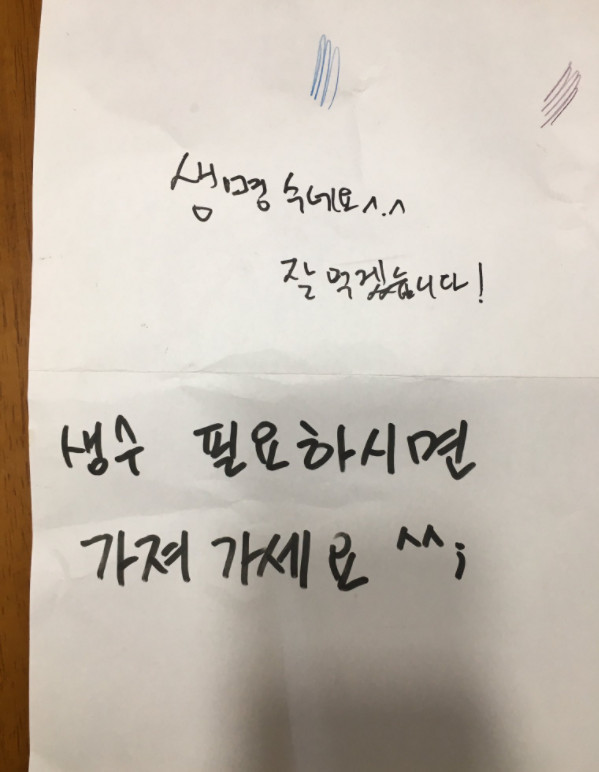 생명수네요^.^
잘 먹겠습니다!
생수 필요하시면
가져 가세요 ^^;